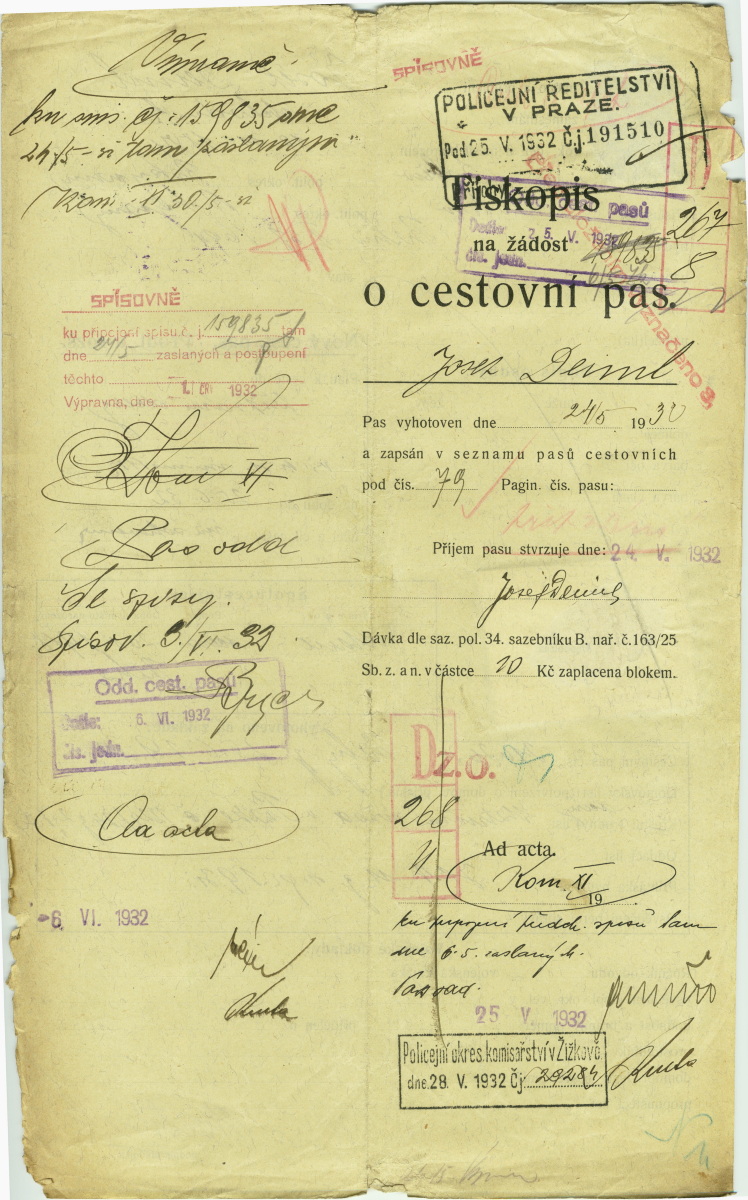 SPÍSOVNĚ
ku připojení spisu č. j. 159835 tam
dne 24/5 zaslaných a postoupení
těchto
Výpravna, dne 1. ČER 1932
Pas odd
Se spisy.
Spisov. 3/VI. 32
Odd. cest. pasů
Došlo: 6. VI. 1932
čís. jedn.
Ad acta
-6. VI. 1932
SPÍSOVNĚ
POLICEJNÍ ŘEDITELSTVÍ
V PRAZE.
Pod 25. V. 1932 Čj. 191510
Přílohy
Tiskopis
pasů
na žádost
Došlo: 25. V. 1932
čís. jedn.
D
267
8
o cestovní pas.
Josef Deiml
Pas vyhotoven dne 24/5 1932
a zapsán v seznamu pasů cestovních
pod čís. 79 Pagin. čís. pasu:
Příjem pasu stvrzuje dne: 24. V. 1932
Josef Deiml
Dávka dle saz. pol. 34. sazebníku B. nař. č. 163/25
Sb. z. a n. v částce 10 Kč zaplacena blokem.
Dz. o.
268
Ad acta.
Kom. XI
19
ku připojení předch. spisů tam
dne 6.5. zaslaných.
25 V. 1932
Policejní okres. komisařství v Žižkově
dne 28. V. 1932 Čj. 29284